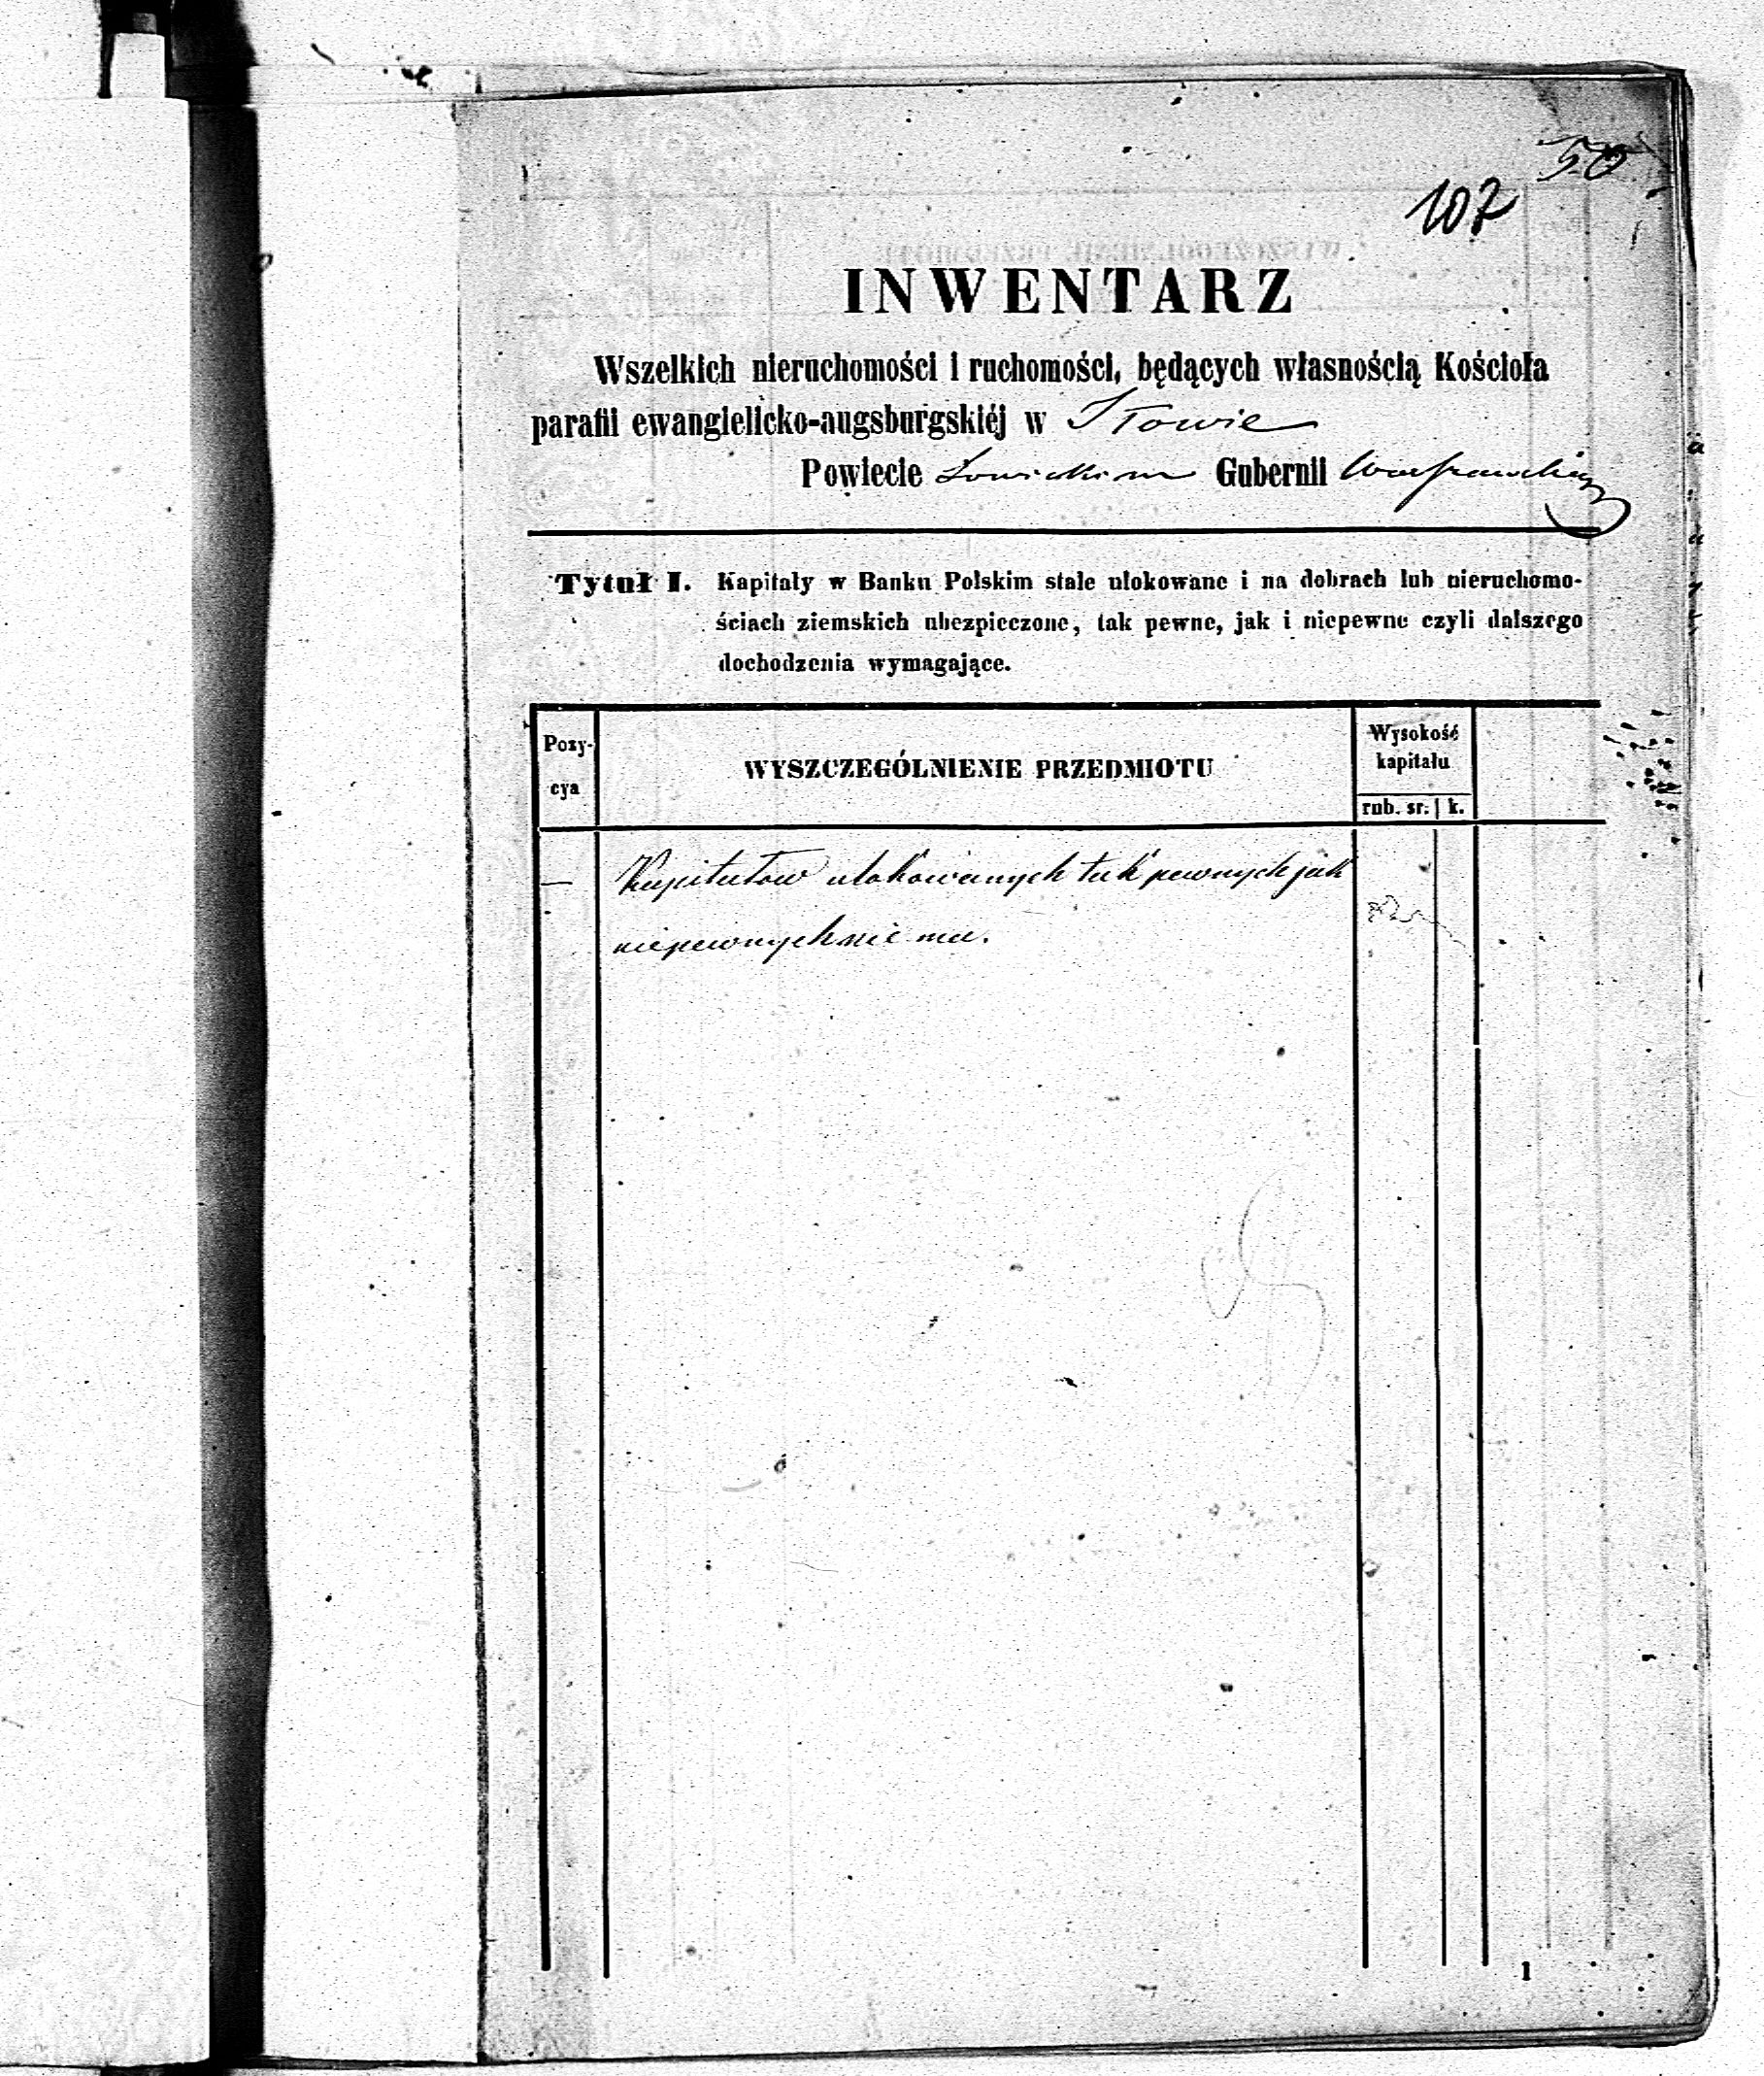 50
107
INWENTARZ
Wszelkich nieruchomości i ruchomości, będących własnością Kościoła
parafii ewangielicko-augsburgskiéj w Iłowie
Powiecie Łowickim Gubernii Warszawskiej
Tytuł I. Kapitały w Banku Polskim stale ulokowane i na dobrach lub nieruchomo-
ściach ziemskich ubezpieczone, tak pewne, jak i niepewne czyli dalszego
dochodzenia wymagające.
Pozy-
cya
WYSZCZEGÓLNIENIE PRZEDMIOTU
Wysokość
kapitału
rub. sr. k.
— Kapitałów ulokowanych tak pewnych jak
niepewnych nie ma.
1